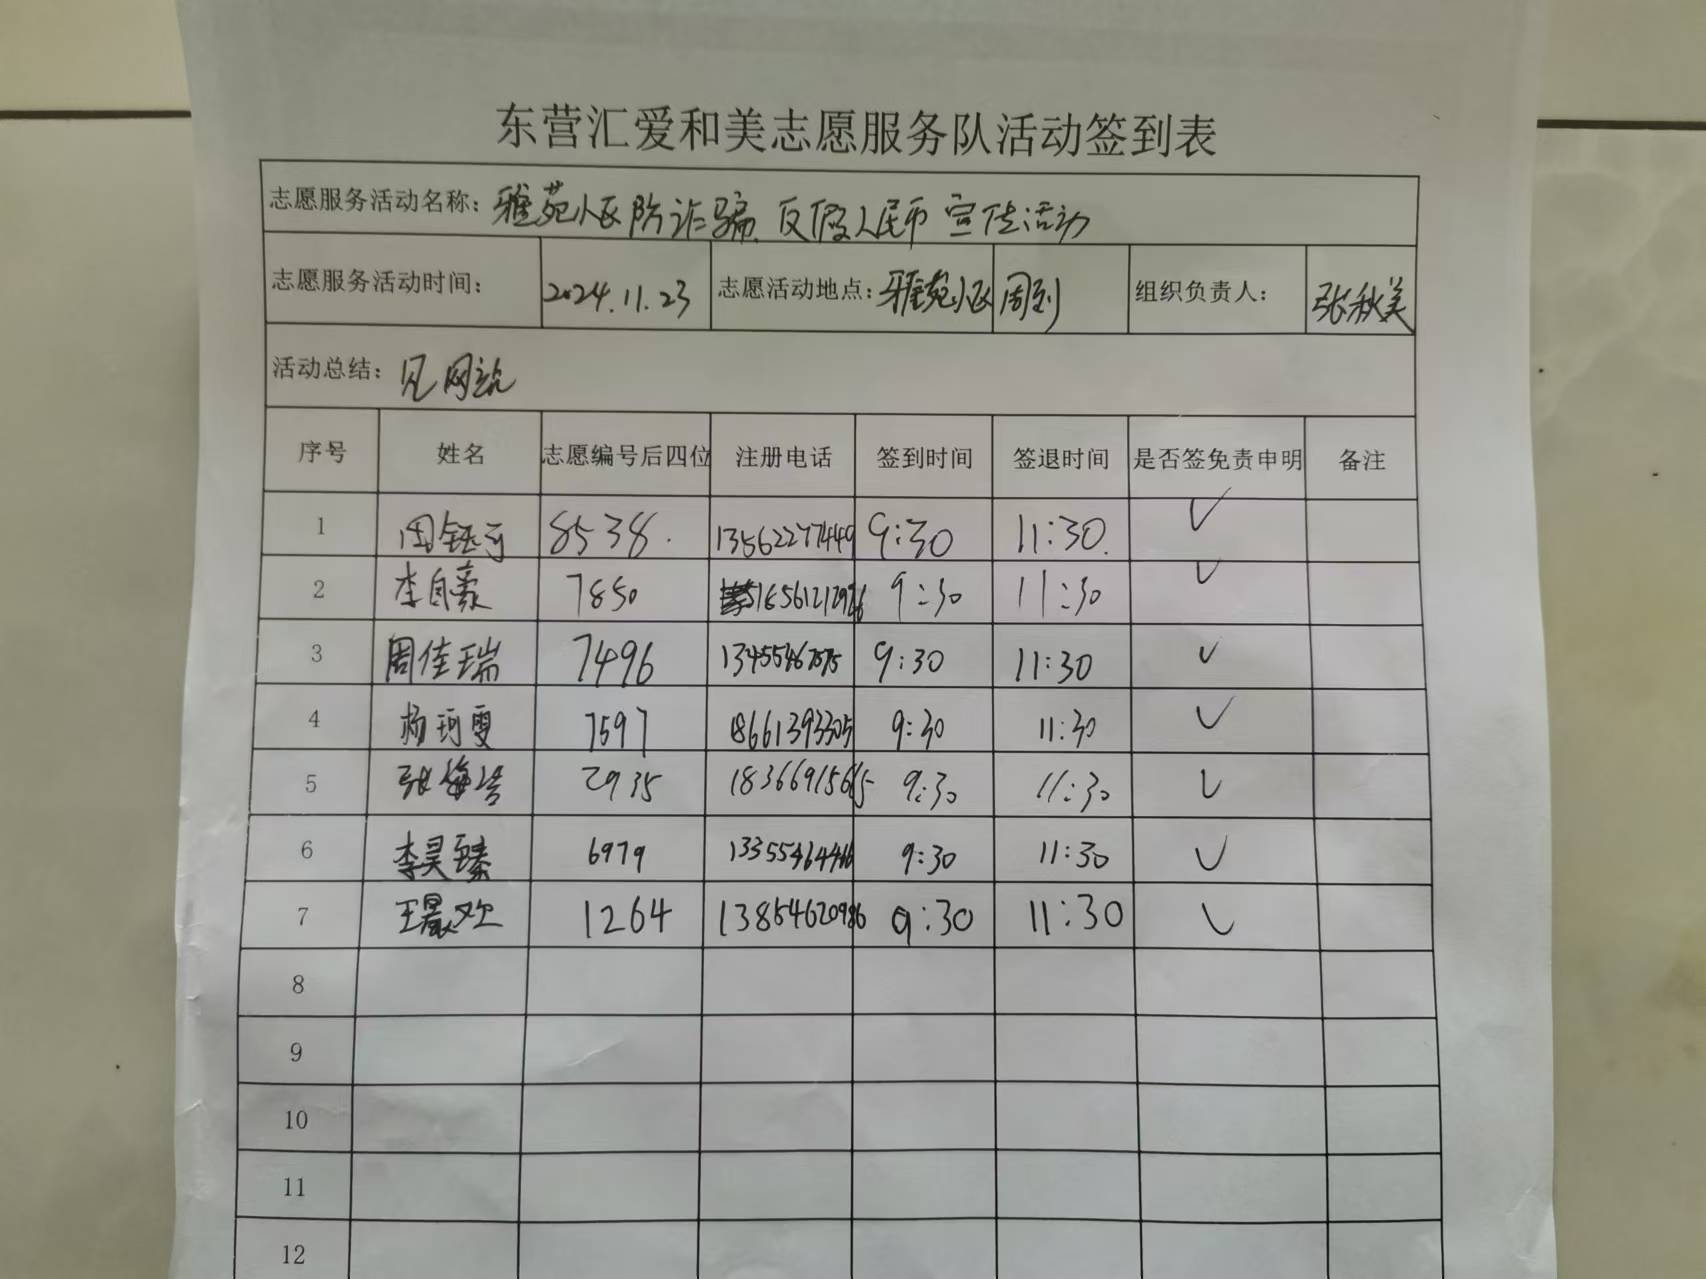 东营汇爱和美志愿服务队活动签到表
志愿服务活动名称：雅苑小区防诈骗、反假人民币宣传活动
志愿服务活动时间： 2024.11.23 志愿活动地点：雅苑小区周到 组织负责人： 张秋美
活动总结：见网站
序号 姓名 志愿编号后四位 注册电话 签到时间 签退时间 是否签免责申明 备注
1 周钰河 8538. 13562277449 9:30 11:30. ✓
2 李自豪 7850 9:30 11:30 ✓
3 周佳瑞 7496 13455467575 9:30 11:30 ✓
4 杨珂雯 7597 18661393305 9:30 11:30 ✓
5 张 2935 9:30 11:30 ✓
6 李昊臻 6979 9:30 11:30 ✓
7 王晨欢 1264 13854620986 9:30 11:30 ✓
8
9
10
11
12